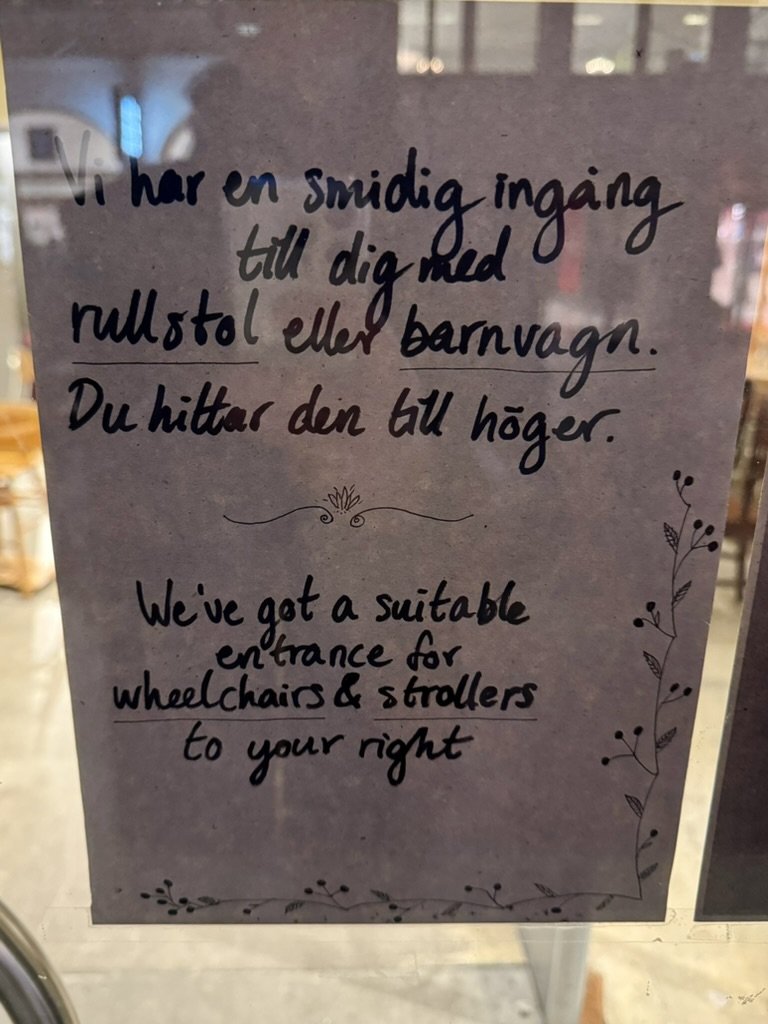 Vi har en smidig ingång
till dig med
rullstol eller barnvagn.
Du hittar den till höger.
We've got a suitable
entrance for
wheelchairs & strollers
to your right